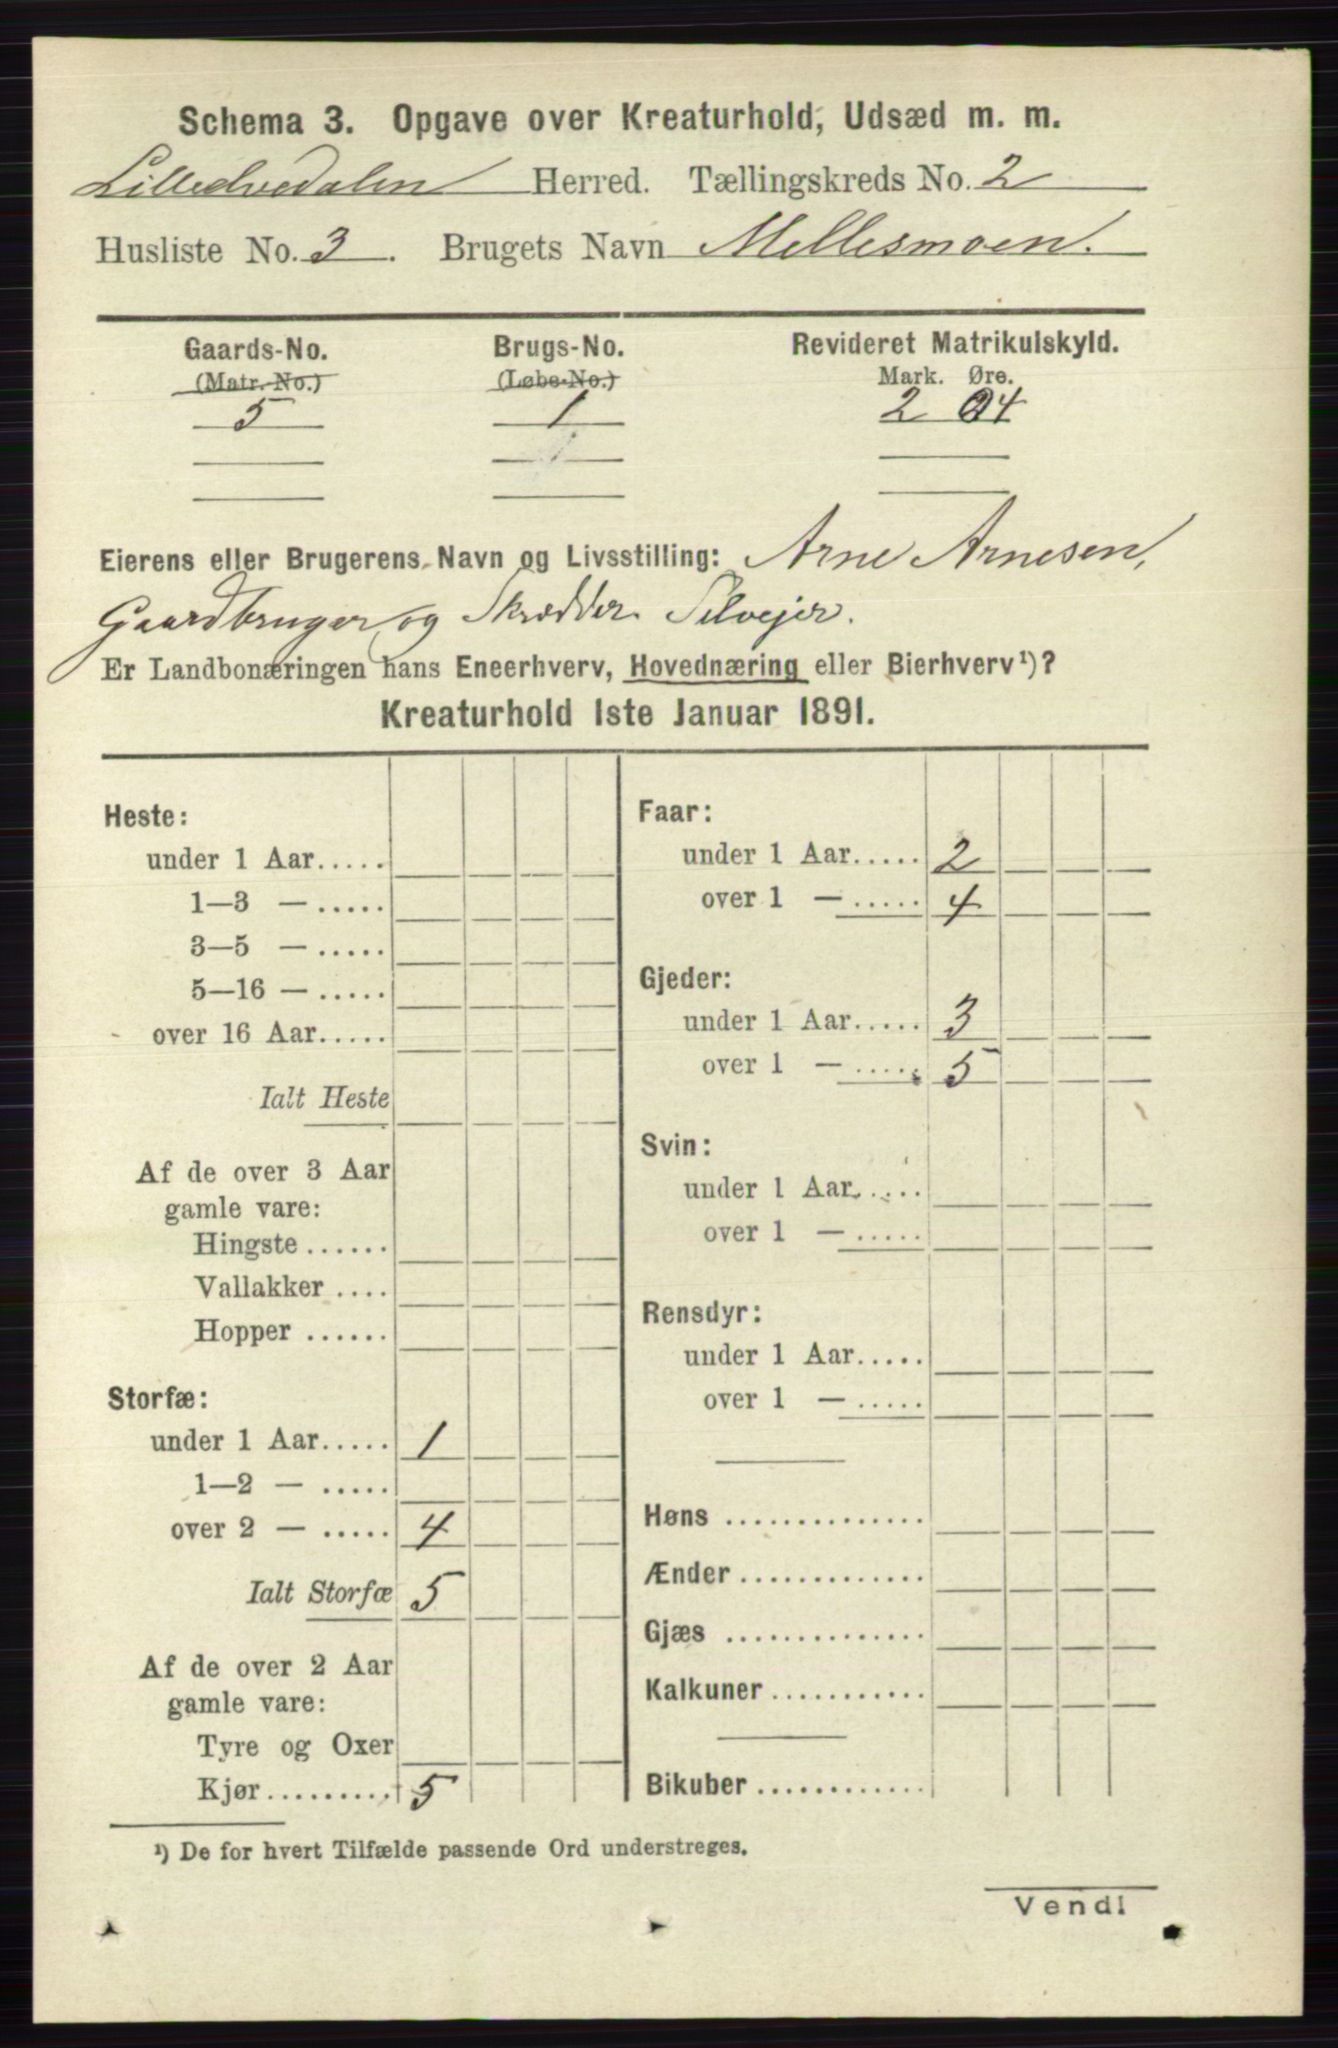 Schema 3. Opgave over Kreaturhold, Udsæd m. m.
Lilleelvedalen Herred. Tællingskreds No. 2
Husliste No. 3. Brugets Navn Mellesmoen.
Gaards-No. Brugs-No. Revideret Matrikulskyld.
(Matr. No.) (Løbe-No.) Mark. Øre.
5 1 2 04
Eierens eller Brugerens Navn og Livsstilling: Arne Arnesen,
Gaardbruger og Skrædder. Selvejer.
Er Landbonæringen hans Eneerhverv, Hovednæring eller Bierhverv¹)?
Kreaturhold 1ste Januar 1891.
Heste:
under 1 Aar.....
1—3 — .....
3—5 — .....
5—16 — .....
over 16 Aar.....
Ialt Heste
Af de over 3 Aar
gamle vare:
Hingste ......
Vallakker ....
Hopper ......
Storfæ:
under 1 Aar..... 1
1—2 — .....
over 2 — ..... 4
Ialt Storfæ 5
Af de over 2 Aar
gamle vare:
Tyre og Oxer
Kjør.......... 5
Faar:
under 1 Aar..... 2
over 1 — ..... 4
Gjeder:
under 1 Aar..... 3
over 1 — ..... 5
Svin:
under 1 Aar.....
over 1 — .....
Rensdyr:
under 1 Aar.....
over 1 — .....
Høns ..............
Ænder .............
Gjæs ..............
Kalkuner ...........
Bikuber ............
¹) De for hvert Tilfælde passende Ord understreges.
Vend!